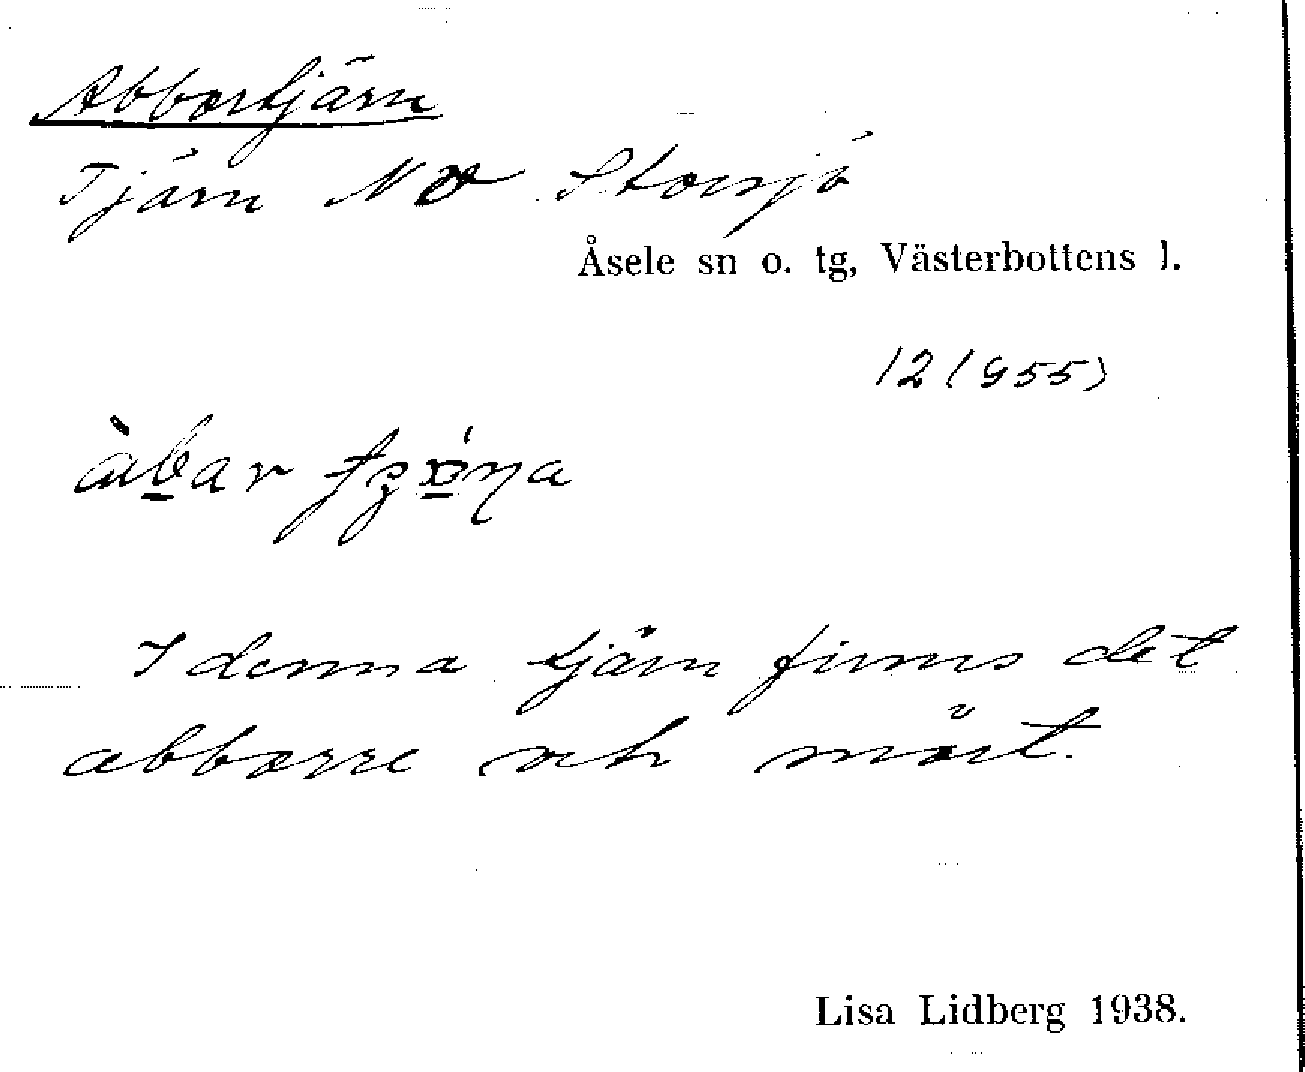 Abbortjärn
Tjärn NO Storsjö
Åsele sn o. tg, Västerbottens l.
12 (955)
I denna tjärn finns det
abborre och mört.
Lisa Lidberg 1938.